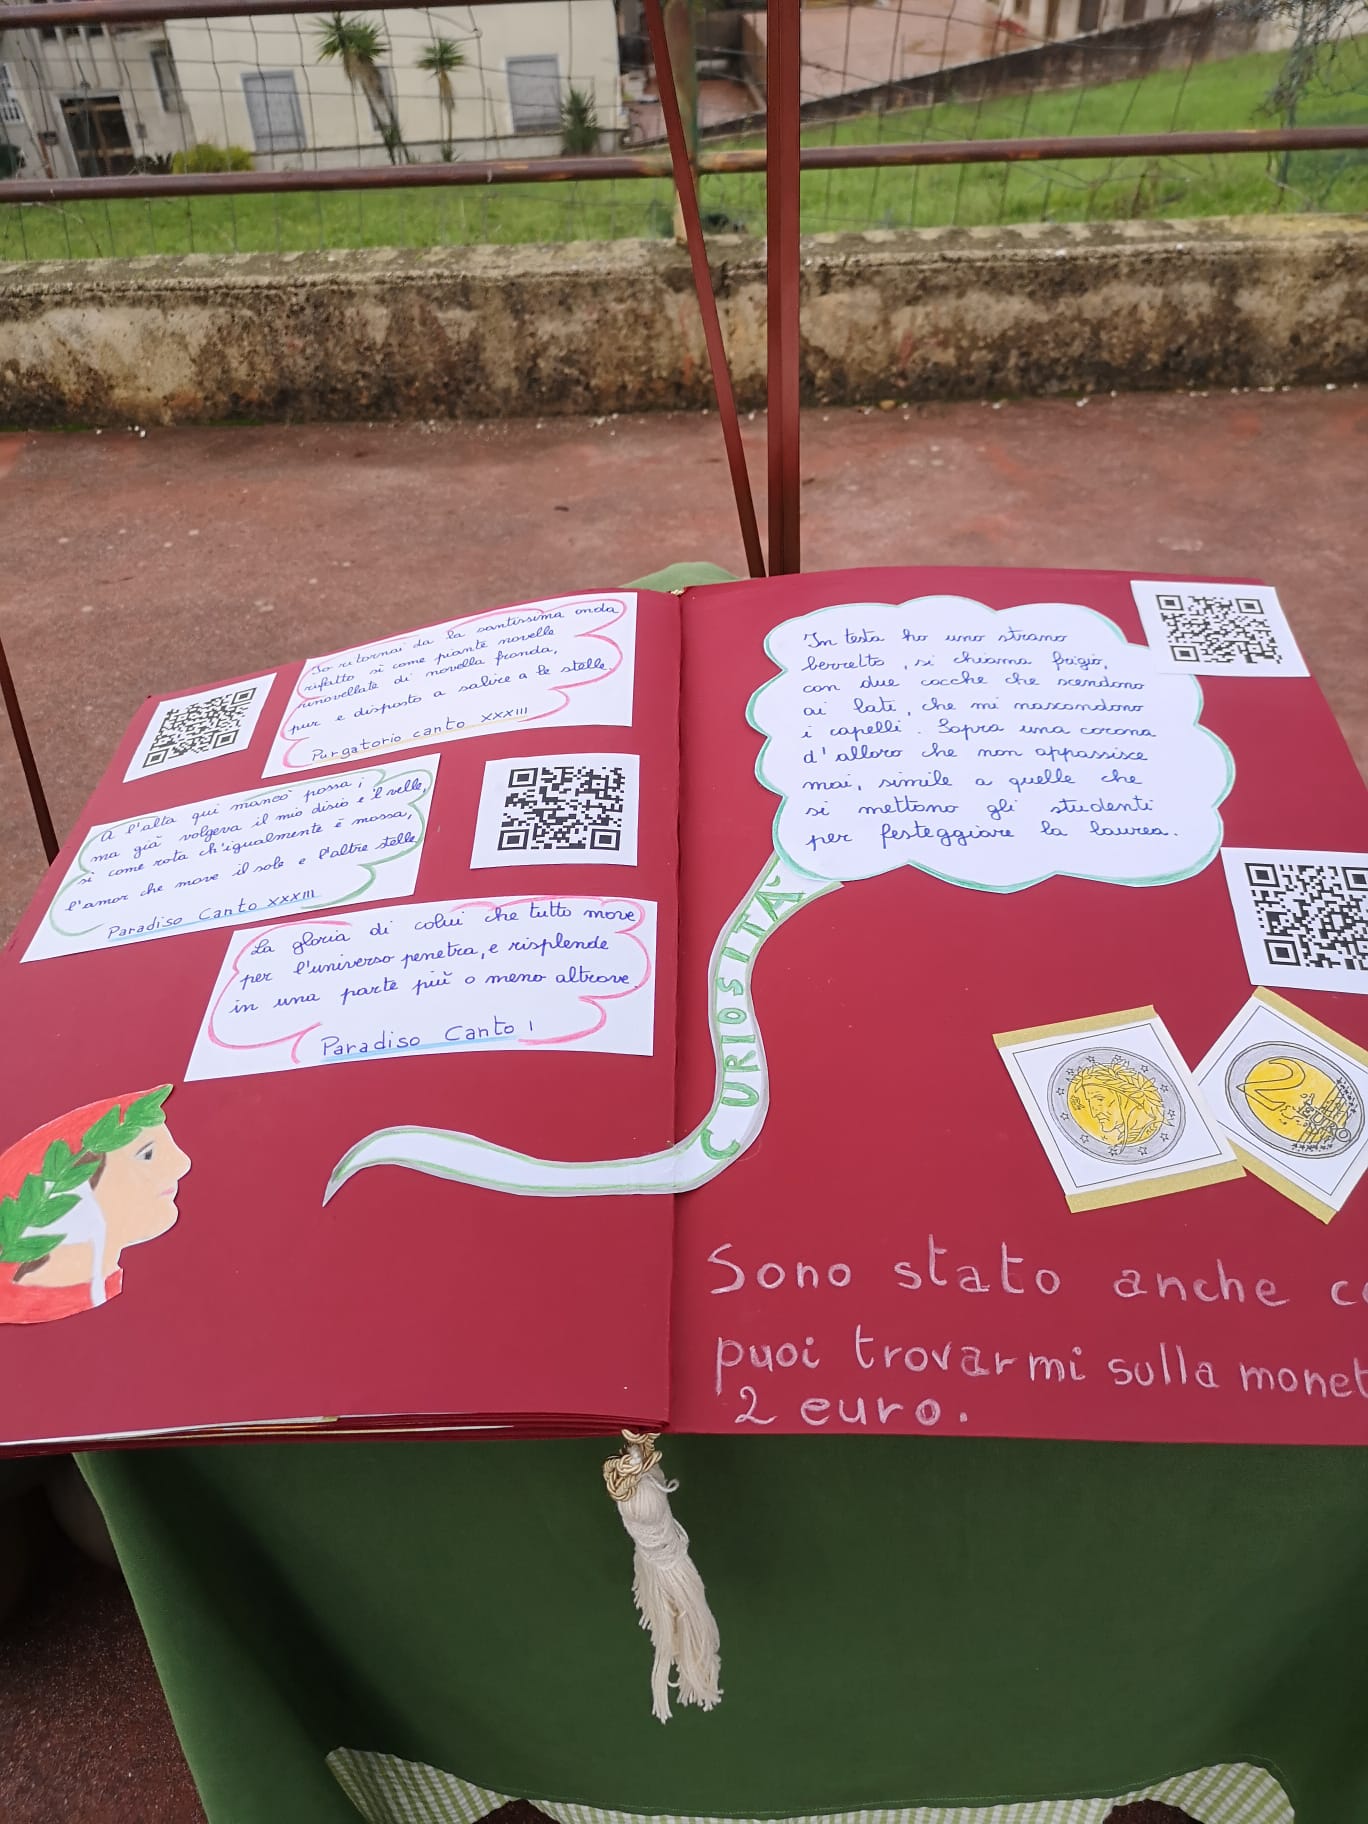 Io ritornai da la santissima onda
rifatto sì come piante novelle
rinovellate di novella fronda,
puro e disposto a salire a le stelle.
Purgatorio canto XXXIII
A l'alta qui mancò possa;
ma già volgeva il mio disio e 'l velle,
sì come rota ch'igualmente è mossa,
l'amor che move il sole e l'altre stelle
Paradiso Canto XXXIII
La gloria di colui che tutto move
per l'universo penetra, e risplende
in una parte più o meno altrove.
Paradiso Canto I
CURIOSITÀ
In testa ho uno strano
berretto, si chiama frigio,
con due cocche che scendono
ai lati, che mi nascondono
i capelli. Sopra una corona
d'alloro che non appassisce
mai, simile a quelle che
si mettono gli studenti
per festeggiare la laurea.
2
EURO
Sono stato anche
puoi trovarmi sulla monet
2 euro.